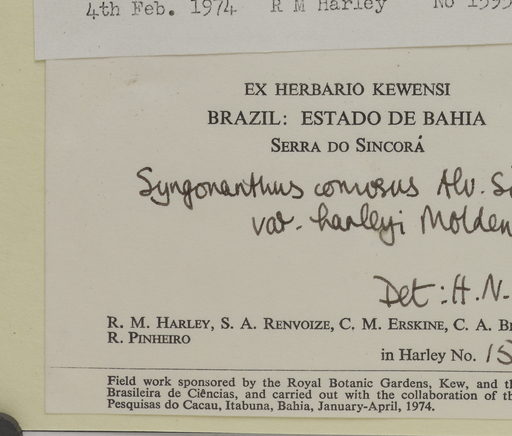 4th Feb. 1974 R M Harley No
EX HERBARIO KEWENSI
BRAZIL: ESTADO DE BAHIA
SERRA DO SINCORÁ
Syngonanthus comosus Alv.
var. harleyi Molden
Det: H.N.
R. M. HARLEY, S. A. RENVOIZE, C. M. ERSKINE, C. A.
R. PINHEIRO
in Harley No. 15
Field work sponsored by the Royal Botanic Gardens, Kew, and
Brasileira de Ciências, and carried out with the collaboration of
Pesquisas do Cacau, Itabuna, Bahia, January-April, 1974.